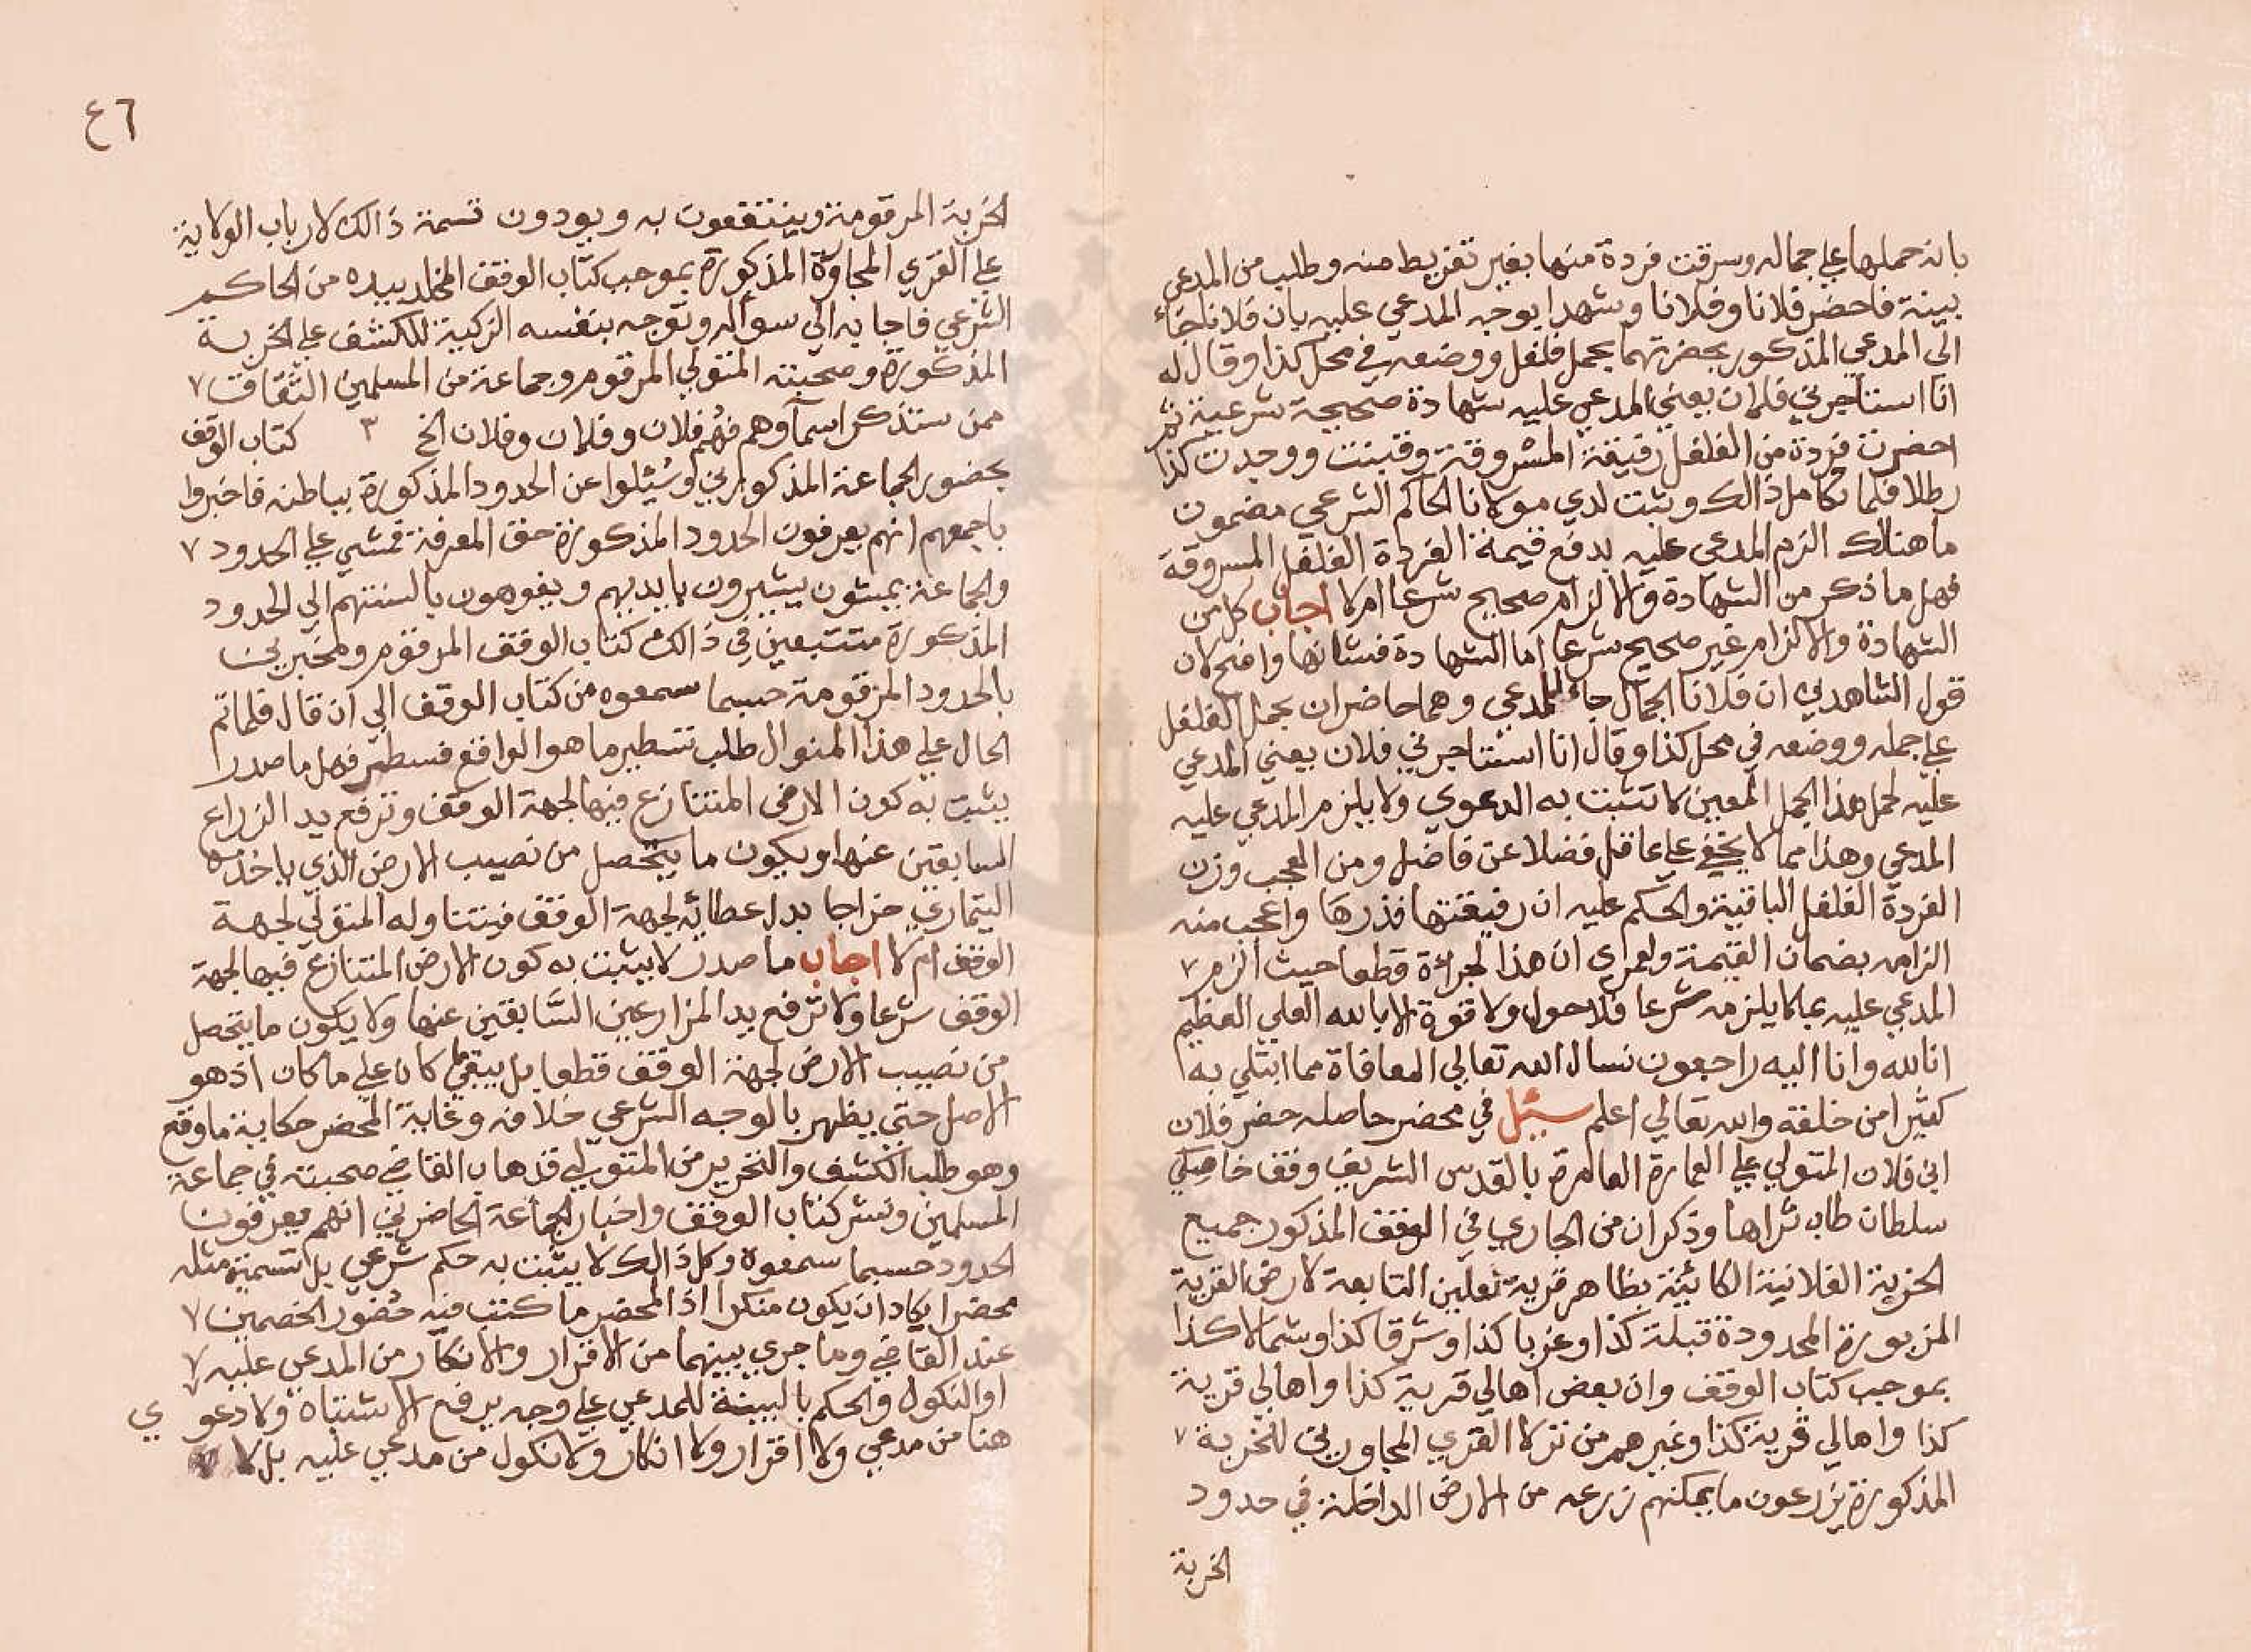 بانه حملها علي جماله وسرقت فردة منها بغير تفريط منه وطلب من المدعي
بينة فاحضر فلانا وفلانا وشهدا بوجه المدعي عليه بان فلانا جاء
الي المدعي المذكور بحضرتهما بحمل فلفل ووضعه في محل كذا وقال له
انا استاجرني فلان يعني المدعي عليه شهادة صحيحة شرعية ثم
احضرت فردة من الفلفل رفيقة المسروقة وقبنت ووجدت كذا
رطلا فلما تكامل ذالك وثبت لدي مولانا الحاكم الشرعي مضمون
ما هنالك الزم المدعي عليه بدفع قيمة الفردة الفلفل المسروقة
فهل ما ذكر من الشهادة والالزام صحيح شرعا ام لا اجاب كل من
الشهادة والالزام غير صحيح شرعا اما الشهادة فشانها واضح لان
قول الشاهدين ان فلانا الجمال جاء للمدعي وهما حاضران بحمل الفلفل
علي جمله ووضعه في محل كذا وقال انا استاجرني فلان يعني المدعي
عليه لحمل هذا الحمل المعين لا تثبت به الدعوي ولا يلزم المدعي عليه
المدعي وهذا مما لا يخفي علي عاقل فضلا عن فاضل ومن العجب وزن
الفردة الفلفل الباقية والحكم عليه ان رفيقتها قدرها واعجب منه
الزامه بضمان القيمة ولعمري ان هذا لجراءة قطعا حيث الزم ٧
المدعي عليه بما لا يلزمه شرعا فلا حول ولا قوة الا بالله العلي العظيم
انا لله وانا اليه راجعون نسال الله تعالي المعافاة مما ابتلي به
كثيرا من خلقه والله تعالي اعلم سئيل في محضر حاصله حضر فلان
ابن فلان المتولي علي العمارة العامرة بالقدس الشريف وقف خاصكي
سلطان طاب ثراها وذكر ان من الجاري في الوقف المذكور جميع
الخربة الفلانية الكائنة بظاهر قرية نعلين التابعة لارض القرية
المزبورة المحدودة قبلة كذا وغربا كذا وشرقا كذا وشمالا كذا
بموجب كتاب الوقف وان بعض اهالي قرية كذا واهالي قرية
كذا واهالي قرية كذا وغيرهم من نزلا القري المجاورين للخربة ٧
المذكورة يزرعون ما يمكنهم زرعه من الارض الداخلة في حدود
الخربة
٤٦
الخربة المرقومة وينتفعون به ويودون قسمة ذالك لارباب الولاية
علي القري المجاورة المذكورة بموجب كتاب الوقف المخلد بيده من الحاكم
الشرعي فاجابه الي سواله وتوجه بنفسه الزكية للكشف علي الخربة
المذكورة وصحبته المتولي المرقوم وجماعة من المسلمين الثقات ٧
ممن ستذكر اسماوهم فهم فلان وفلان وفلان الخ ٣ كتاب الوقف
بحضور الجماعة المذكورين وسُئيلوا عن الحدود المذكورة بباطنه فاخبروا
باجمعهم انهم يعرفون الحدود المذكورة حق المعرفة فمشي علي الحدود ٧
والجماعة يمشون يشيرون بايديهم ويفوهون بالسنتهم الي الحدود
المذكورة متتبعين في ذالك كتاب الوقف المرقوم ومخبرين
بالحدود المرقومة حسبما سمعوه من كتاب الوقف الي ان قال فلما تم
الحال علي هذا المنوال طلب تسطير ما هو الواقع فسطر فهل ما صدر
يثبت به كون الارض المتنازع فيها لجهة الوقف وترفع يد الزراع
السابقين عنها ويكون ما يتحصل من نصيب الارض الذي ياخذه
التيماري خراجا بدل عطائه لجهة الوقف فيتناوله المتولي لجهة
الوقف ام لا اجاب ما صدر لا يثبت به كون الارض المتنازع فيها لجهة
الوقف شرعا ولا ترفع يد المزارعين السَّابقين عنها ولا يكون ما يتحصل
من نصيب الارض لجهة الوقف قطعا بل يبقي ما كان علي ما كان اذ هو
الاصل حتي يظهر بالوجه الشرعي خلافه وغاية المحضر حكاية ما وقع
وهو طلب الكشف والتحرير من المتولي فذهاب القاضي صحبته في جماعة
المسلمين ونشر كتاب الوقف واخبار الجماعة الحاضرين انهم يعرفون
الحدود حسبما سمعوه وكل ذالك لا يثبت به حكم شرعي بل تسمية مثله
محضرا يكاد ان يكون منكرا اذ المحضر ما كتب فيه حُضور الخصمين ٧
عند القاضي وما جري بينهما من الاقرار والانكار من المدعي عليه ٧
او النكول والحكم بالبينة للمدعي علي وجه يرفع الاشتباه ولا دعوي
هنا من مدعي ولا اقرار ولا انكار ولا نكول من مدعي عليه بل لا